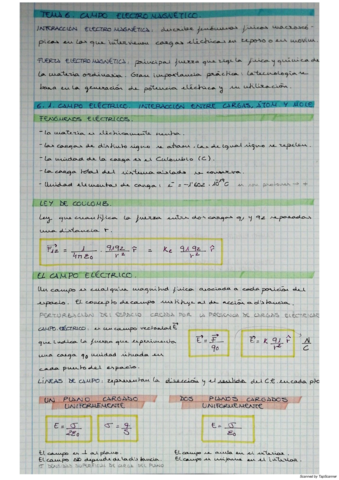 TEMA 6. CAMPO ELECTROMAGNÉTICO.
INTERACCIÓN ELECTROMAGNÉTICA: describe fenómenos físicos macroscó-
picos en los que intervienen cargas eléctricas en reposo o en mov.
FUERZA ELECTROMAGNÉTICA: principal fuerza que rige la física y química de
la materia ordinaria. Gran importancia práctica: la tecnología se
basa en la generación de potencia eléctrica y su utilización.
6.1 CAMPO ELÉCTRICO. INTERACCIÓN ENTRE CARGAS, ION Y MOLE
FENÓMENOS ELÉCTRICOS
- La materia es eléctricamente neutra.
- Las cargas de distinto signo se atraen. Las de igual signo se repelen.
- La unidad de la carga es el Culombio (C).
- La carga total del sistema aislado se conserva.
- Unidad elemental de carga: e⁻ = -1'602 · 10⁻¹⁹ C
LEY DE COULOMB.
Ley que cuantifica la fuerza entre dos cargas q1 y q2 separadas
una distancia r.
F12 = 1/4πε0 q1q2/r² r̂ = Ke q1q2/r² r̂
EL CAMPO ELÉCTRICO.
Un campo es cualquier magnitud física asociada a cada posición del
espacio. El concepto de campo sustituye al de acción a distancia.
PERTURBACIÓN DEL ESPACIO CREADA POR LA PRESENCIA DE CARGAS ELÉCTRICAS
CAMPO ELÉCTRICO: es un campo vectorial E
que indica la fuerza que experimenta
una carga q0 unidad situada en
cada punto del espacio.
E = F/q0
E = K q1/r² r̂ N/C
LÍNEAS DE CAMPO: representan la dirección y el sentido del C.E. en cada pto
UN PLANO CARGADO
UNIFORMEMENTE
DOS PLANOS CARGADOS
UNIFORMEMENTE
E = σ/2ε0
σ = q/S
E = σ/ε0
El campo es ⊥ al plano.
El campo no depende de la distancia.
σ DENSIDAD SUPERFICIAL DE CARGA DEL PLANO
El campo es nulo en el exterior.
El campo es uniforme en el interior.
Scanned by TapScanner